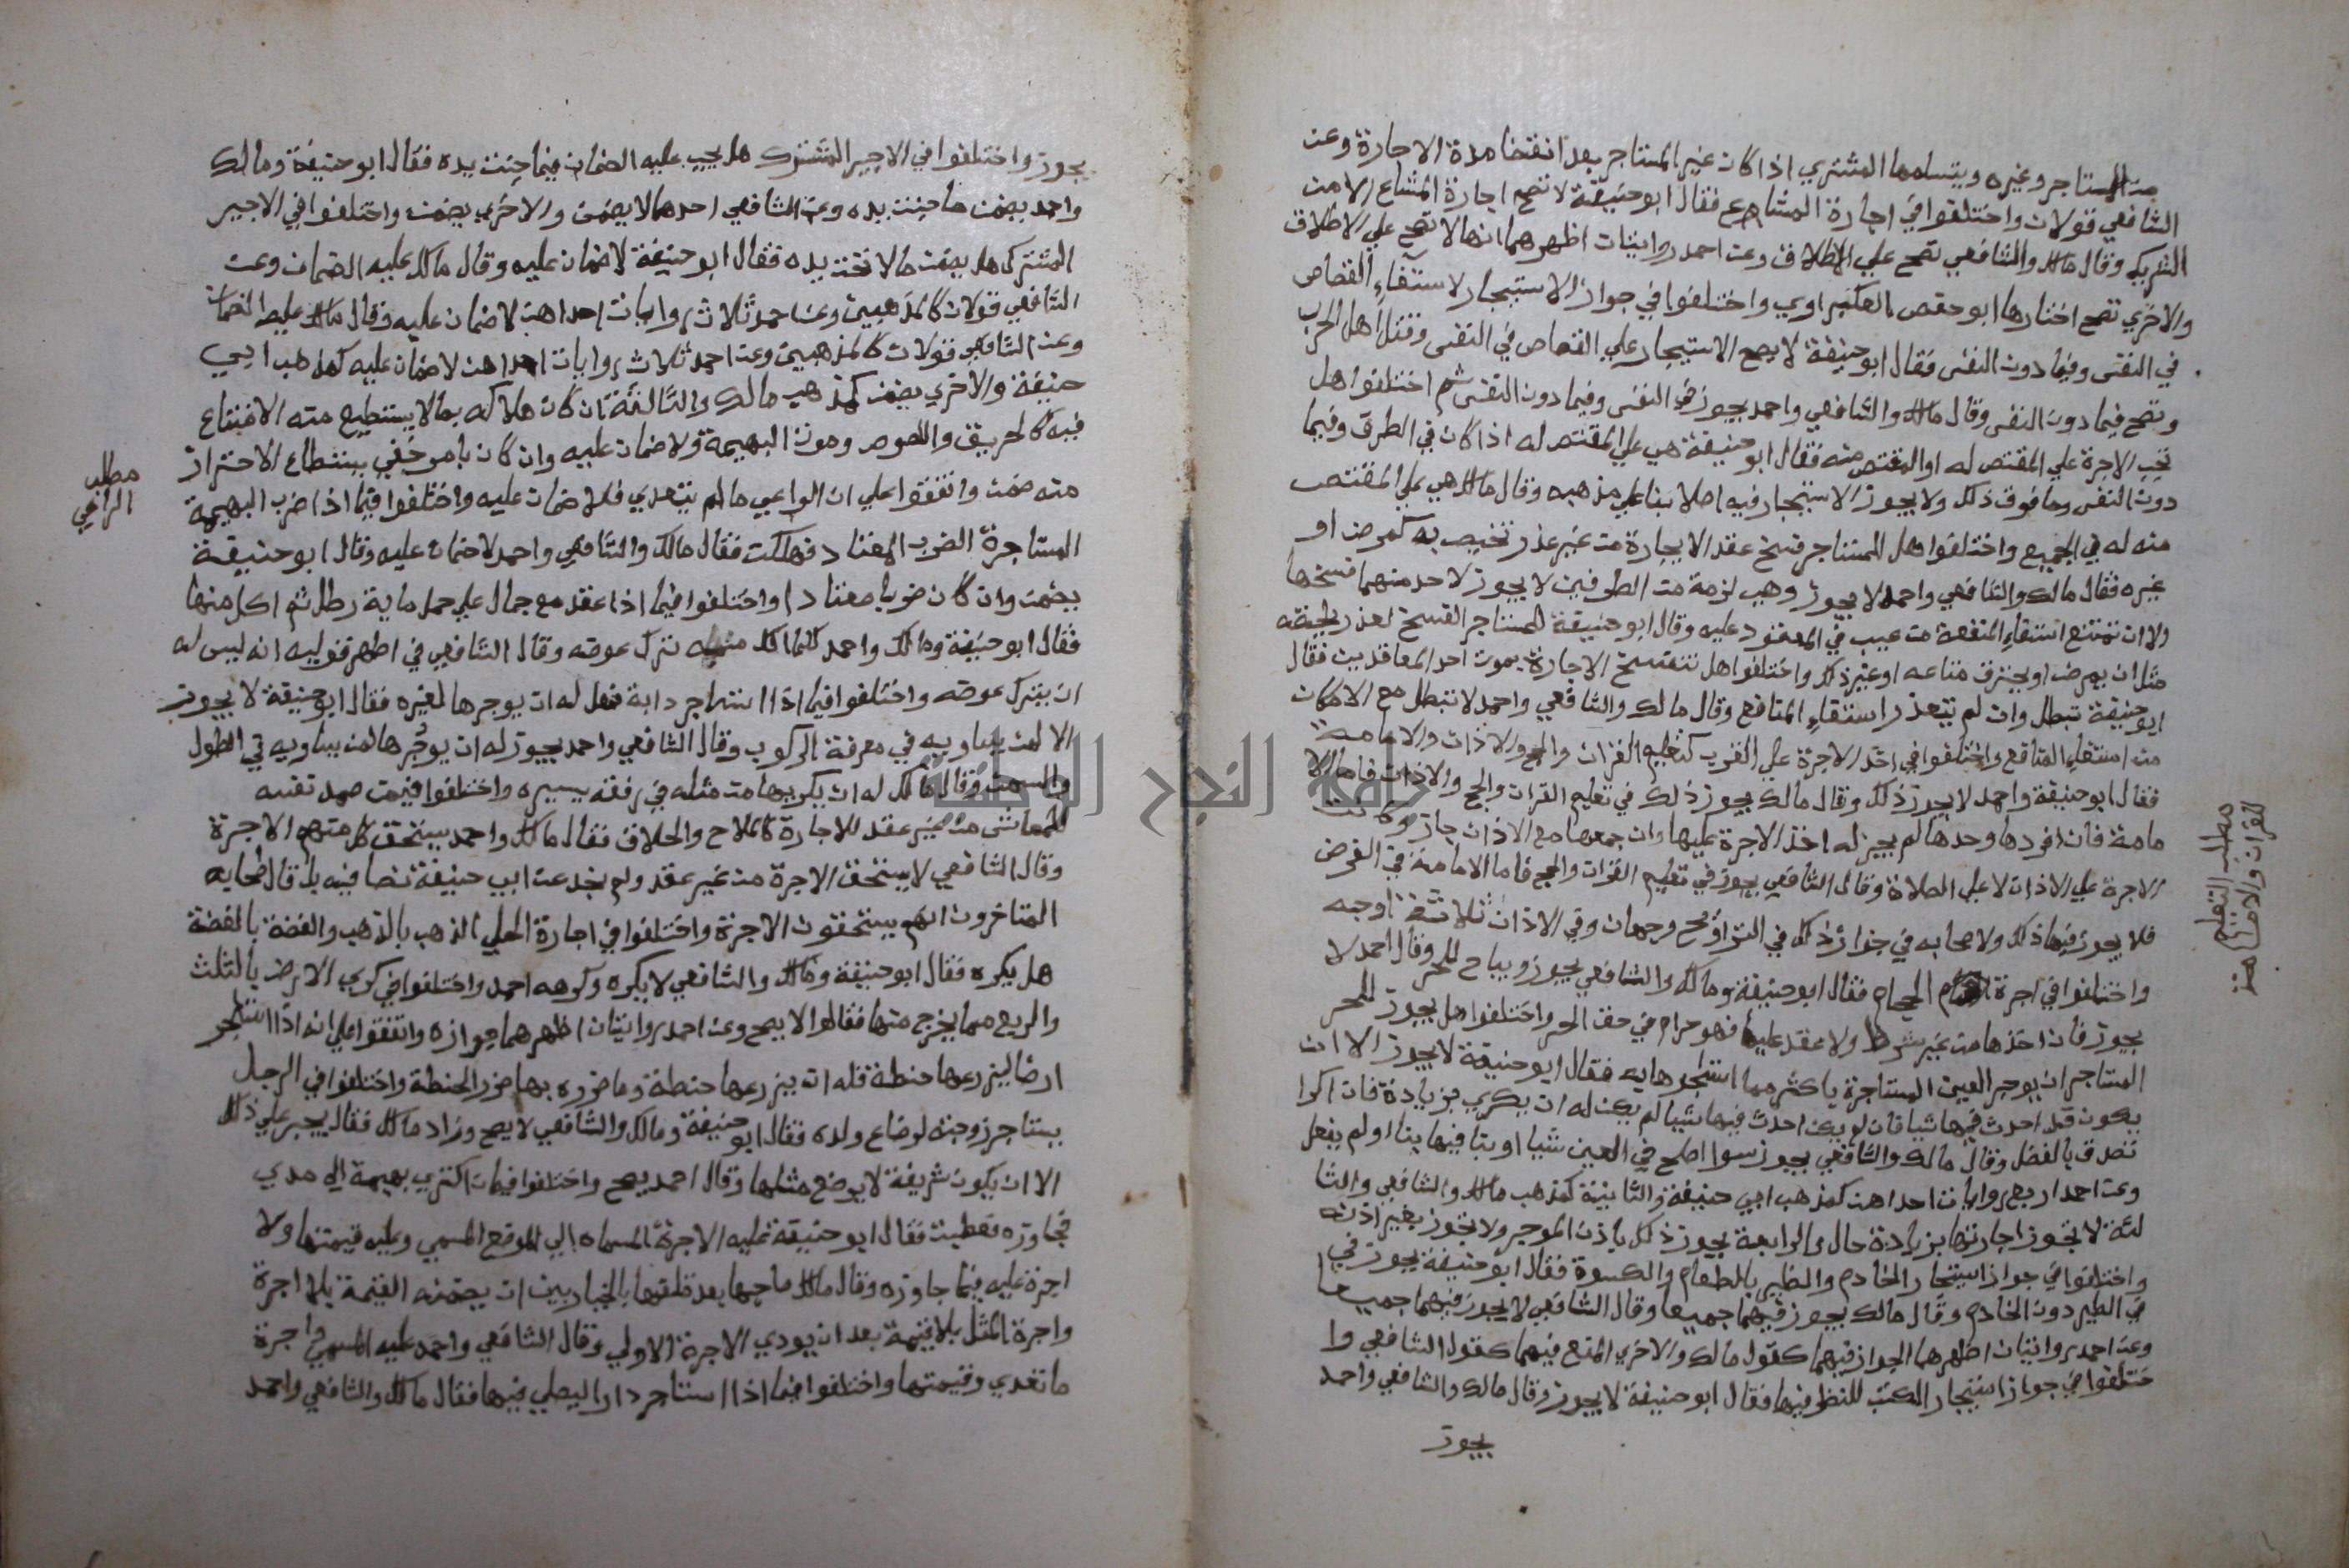 من المستاجر وغيره ويتسلمها المشتري اذا كان غير المستاجر بعد انقضا مدة الاجارة وعن
الشافعي قولان واختلفوا في اجارة المشاع فقال ابو حنيفة لا تصح اجارة المشاع الا من
الشريك وقال مالك والشافعي تصح علي الاطلاق وعن احمد روايتان اظهرهما انها لا تصح علي الاطلاق
والاخري تصح اختارها ابو حفص العكبراوي واختلفوا في جواز الاستيجار لاستيفاء القصاص
في النفس وفيما دون النفس فقال ابو حنيفة لا يصح الاستيجار علي القصاص في النفس وقتل اهل الحرب
وتصح فيما دون النفس وقال مالك والشافعي واحمد يجوز في النفس وفيما دون النفس ثم اختلفوا هل
تجب الاجرة علي المقتص له او المقتص منه فقال ابو حنيفة هي علي المقتص له اذا كان في الطرف وفيما
دون النفس وما فوق ذلك ولا يجوز الاستيجار فيه اصلا بنا علي مذهبه وقال مالك هي علي المقتص
منه له في الجميع واختلفوا هل للمستاجر فسخ عقد الايجارة من غير عذر تخيص به كمرض او
غيره فقال مالك والشافعي واحمد لا يجوز وهي لزمة من الطرفين لا يجوز لاحد منهما فسخها
الا ان تمتنع استيفاء المنفعة من عيب في المعقود عليه وقال ابو حنيفة للمستاجر الفسخ لعذر يلحقه
مثل ان يمرض او يحترق متاعه او غير ذلك واختلفوا هل تنفسخ الاجارة بموت احد المعاقدين فقال
ابو حنيفة تبطل وان لم يتعذر استيفاء المنافع وقال مالك والشافعي واحمد لا تبطل مع الامكان
من استيفاء المنافع واختلفوا في اخذ الاجرة علي القرب كتعليم القران والحج والاذان والامامة
فقال ابو حنيفة واحمد لا يجوز ذلك وقال مالك يجوز ذلك في تعليم القران والحج والاذان فاما الا
مامة فان افردها وحدها لم يجز له اخذ الاجرة عليها وان جمعها مع الاذان جاز وكانت
الاجرة علي الاذان لا علي الصلاة وقال الشافعي يجوز في تعليم القران والحج فاما الامامة في الفرض
فلا يجوز فيها ذلك ولاصحابه في جواز ذلك في التراويح وجهان وفي الاذان ثلاثة اوجه
واختلفوا في اجرة الحجام فقال ابو حنيفة ومالك والشافعي يجوز ويباح للحر وقال احمد لا
يجوز فان اخذها من غير شرط ولا عقد عليها فهو حرام في حق الحر واختلفوا هل يجوز للحر
المستاجر ان يوجر العين المستاجرة باكثر مما استاجرها به فقال ابو حنيفة لا يجوز الا ان
يكون قد احدث فيها شيا فان لم يكن احدث فيها شيا لم يكن له ان يكري بزيادة فان اكرا
تصدق بالفضل وقال مالك والشافعي يجوز سوا اصلح في العين شيا او بنا فيها بنا او لم يفعل
وعن احمد اربع روايات احداهن كمذهب ابي حنيفة والثانية كمذهب مالك والشافعي والثا
لثة لا تجوز اجارتها بزيادة حال والرابعة يجوز ذلك باذن الموجر ولا تجوز بغير اذنه
واختلفوا في جواز استيجار الخادم والظير بالطعام والكسوة فقال ابو حنيفة يجوز في
في الظير دون الخادم وقال مالك يجوز فيهما جميعا وقال الشافعي لا يجوز فيهما جميعا
وعن احمد روايتان اظهرهما الجواز فيهما كقول مالك والاخري المنع فيهما كقول الشافعي وا
ختلفوا في جواز استيجار الكتب للنظر فيها فقال ابو حنيفة لا يجوز وقال مالك والشافعي واحمد
يجوز
مطلب التعليم
القران والامامة
يجوز واختلفوا في الاجير المشترك هل يجب عليه الضمان فيما جنت يده فقال ابو حنيفة ومالك
واحمد يضمن ما جنت يده وعن الشافعي احدهما لا يضمن والاخري يضمن واختلفوا في الاجير
المشترك هل يضمن ما لا تجنت يده فقال ابو حنيفة لا ضمان عليه وقال مالك عليه الضمان وعن
الشافعي قولان كالمذهبين وعن احمد ثلاث روايات احداهن لا ضمان عليه وقال مالك عليه الضمان
وعن الشافعي قولان كالمذهبين وعن احمد ثلاث روايات احداهن لا ضمان عليه كمذهب ابي
حنيفة والاخري يضمن كمذهب مالك والثالثة ان كان هلاكه بما لا يستطيع منه الامتناع
فيه كالحريق واللصوص وموت البهيمة ولا ضمان عليه وان كان بامر خفي يستطاع الاحتراز
منه ضمن واتفقوا علي ان الراعي ما لم يتعدي فلا ضمان عليه واختلفوا فيما اذا ضرب البهيمة
المستاجرة الضرب المعتاد فهلكت فقال مالك والشافعي واحمد لا ضمان عليه وقال ابو حنيفة
يضمن وان كان ضربا معتادا واختلفوا فيما اذا عقد مع جمال علي حمل ماية رطل ثم اكل منها
فقال ابو حنيفة ومالك واحمد كلما اكل منه ترك عوضه وقال الشافعي في اظهر قوليه انه ليس له
ان يترك عوضه واختلفوا فيما اذا استاجر دابة فهل له ان يوجرها لغيره فقال ابو حنيفة لا يجوز
الا لمن يساويه في معرفة الركوب وقال الشافعي واحمد يجوز له ان يوجرها لمن يساويه في الطول
والسمن وقال مالك له ان يكريها من مثله في رفقه يسيره واختلفوا فيمن صمد نفسه
للمعاش من غير عقد للاجارة كالملاح والحلاق فقال مالك واحمد يستحق كل منهم الاجرة
وقال الشافعي لا يستحق الاجرة من غير عقد ولم نجد عن ابي حنيفة نصا فيه بل قال اصحابه
المتاخرون انهم يستحقون الاجرة واختلفوا في اجارة الحلي الذهب بالذهب والفضة بالفضة
هل يكره فقال ابو حنيفة ومالك والشافعي لا يكره وكرهه احمد واختلفوا في كري الارض بالثلث
والربع مما يخرج منها فقالوا لا يصح وعن احمد روايتان اظهرهما جوازه واتفقوا علي انه اذا استاجر
ارضا ليزرعها حنطة فله ان يزرعها حنطة وما ضرره بها ضرر الحنطة واختلفوا في الرجل
يستاجر زوجته لرضاع ولده فقال ابو حنيفة ومالك والشافعي لا يصح وزاد مالك فقال يجبر علي ذلك
الا ان يكون شريفة لا يرضع مثلها وقال احمد يصح واختلفوا فيمن اكتري بهيمة الي مدي
فجاوزه فعطبت فقال ابو حنيفة عليه الاجرة المسماه الي الموضع المسمي وعليه قيمتها ولا
اجرة عليه فيما جاوزه وقال مالك صاحبها بعد تلفها بالخيار بين ان يضمنه القيمة بلا اجرة
واجرة المثل بلا قيمة بعد ان يودي الاجرة الاولي وقال الشافعي واحمد عليه المسمي واجرة
ما تعدي وقيمتها واختلفوا فيما اذا استاجر دارا ليصلي فيها فقال مالك والشافعي واحمد
مطلب
الراعي